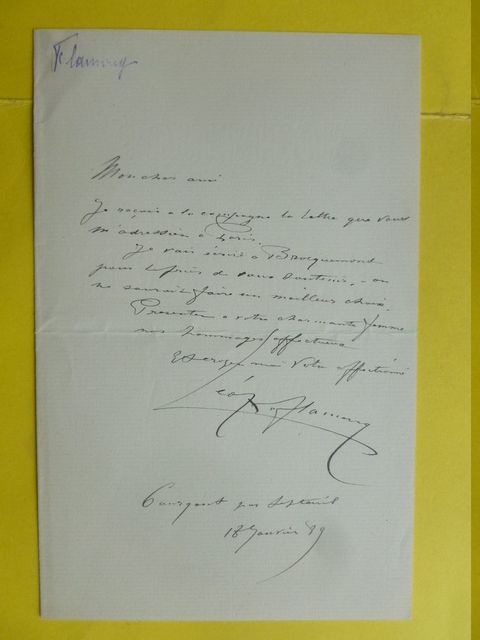 Flameng
Mon cher ami
Je reçois à la campagne la lettre que vous
m'adressiez à Paris.
Je vais écrire à Bracquemond
pour le prier de vous soutenir, on
ne saurait faire un meilleur choix.
Presentez à votre charmante femme
nos hommages affectueux
Et croyez moi Votre affectionné
Léop Flameng
Courgent par Septeuil
18 Janvier 89